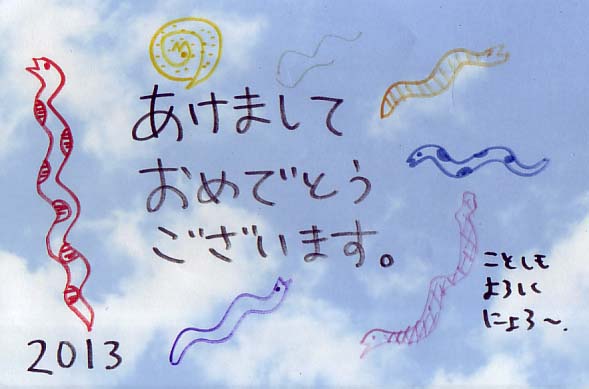 あけまして
おめでとう
ございます。
ことしも
よろしく
にょろ〜。
2013